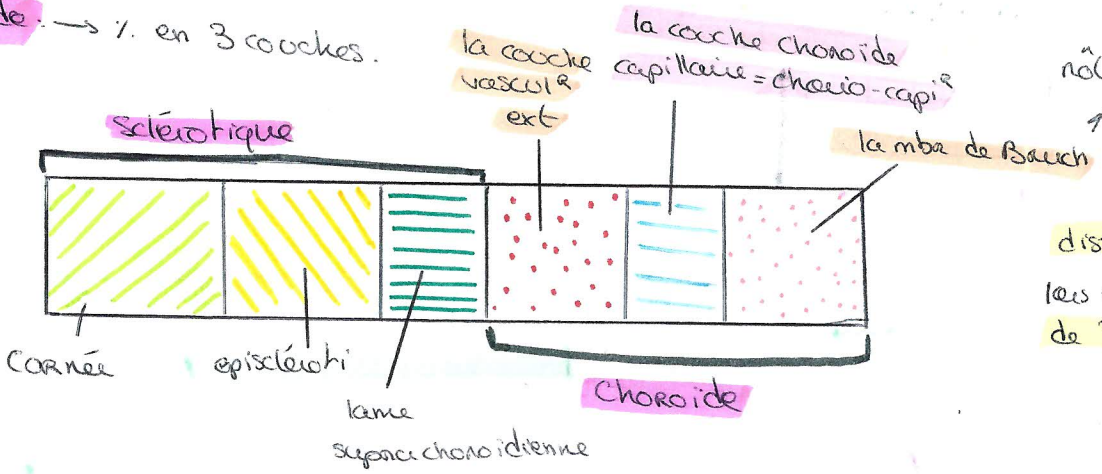 de. → % en 3 couches.
la couche
vascul R
ext
la couche choroïde
capillaire = chorio-capi R
sclérotique
la mbr de Bruch
dis
lors
de
cornée
episcléroti
lame
supra choroïdienne
Choroïde